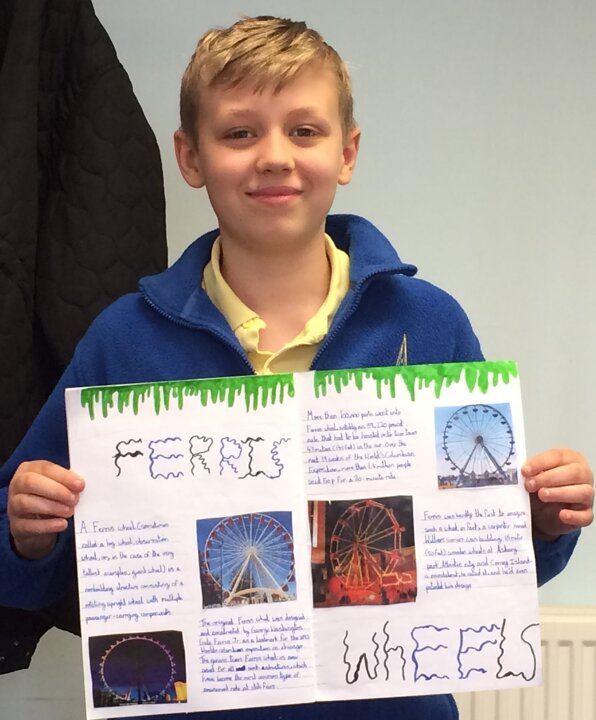 FERRIS
A Ferris wheel (sometimes
called a big wheel, observation
wheel, or, in the case of the very
tallest examples, giant wheel) is a
nonbuilding structure consisting of a
rotating upright wheel with multiple
passenger-carrying components.
The original Ferris wheel was designed
and constructed by George Washington
Gale Ferris Jr. as a landmark for the 1893
World's Columbian exposition in Chicago.
The generic term Ferris wheel is now
used for all such structures, which
have become the most common type of
amusement ride at state fairs.
More than 100,000 parts went into
Ferris wheel, notably an 89,320 pound
axle that had to be hoisted onto two towers
in the air. Over the
next 19 weeks of the World's Columbian
Exposition, more than 1.4 million people
paid for a 20 minute ride.
Ferris was hardly the first to imagine
such a wheel, in fact, a carpenter named
William Somers was building
wooden wheels at Asbury
park, Atlantic city and Coney Island-
a roundabout, he called it, and he'd even
his design.
WHEELS